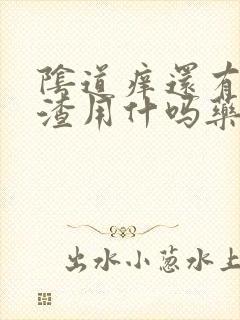 陰道痒還有
渣用什吗藥
出水小葱水上